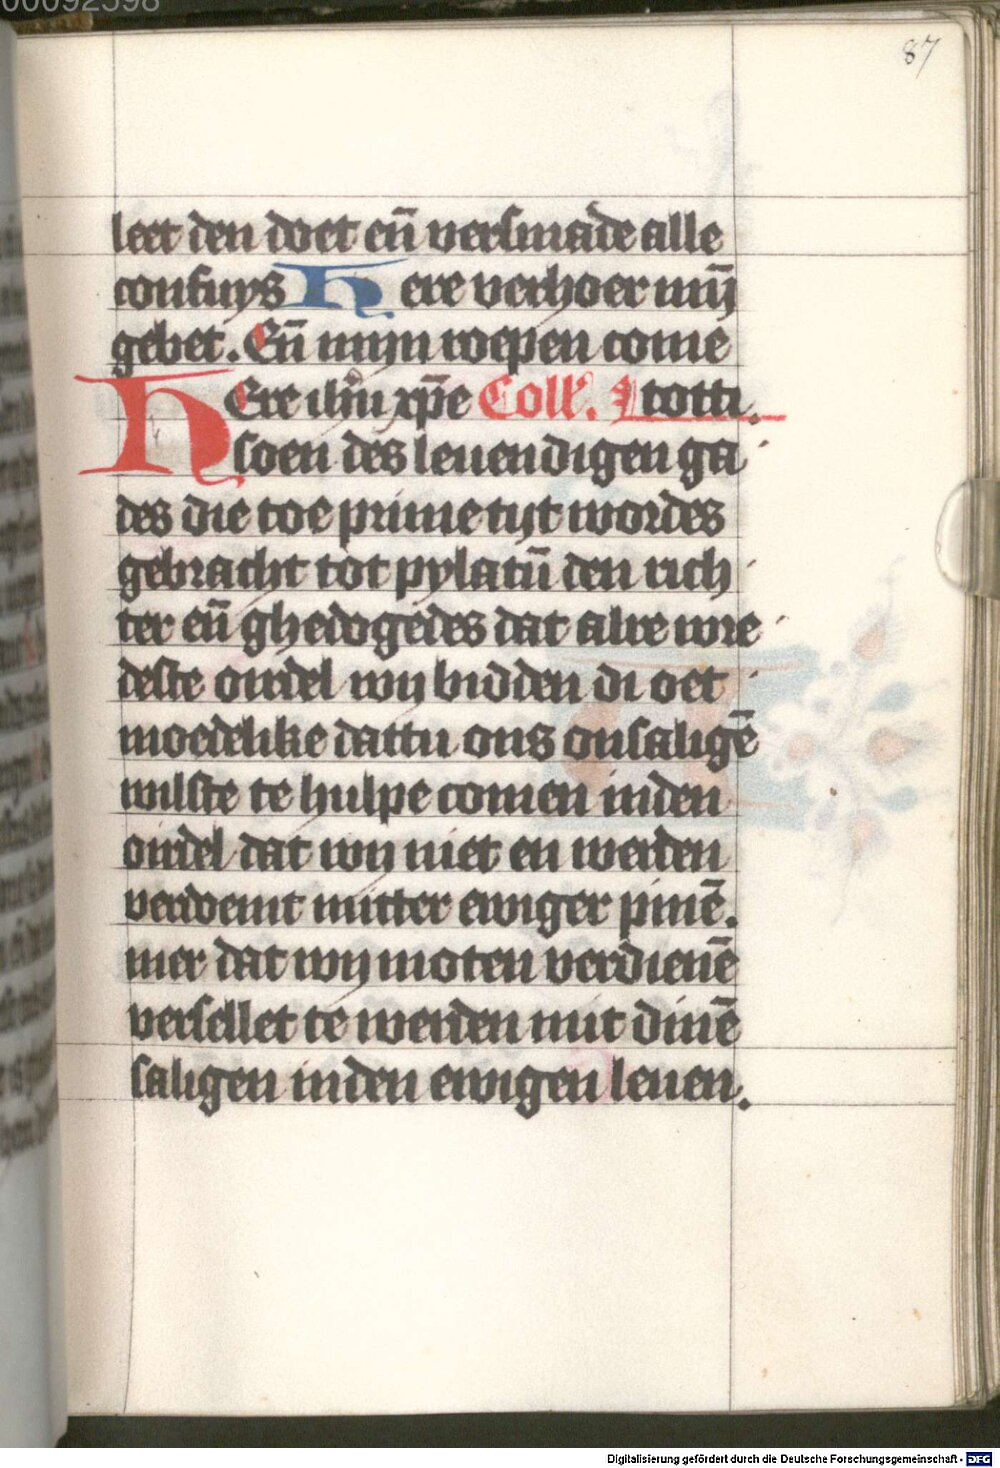 00092598
87
leet den doet en̄ versmade alle
confuys Here verhoer mij̄
gebet. En̄ mijn roepen come
HEre ihū xp̄e Coll'.
soen des leuendigen ga
des die toe prime tijt wordes
gebracht tot pylatū den rich
ter en̄ ghedogedes dat alre wre
deste oirdel wij bidden di oet
moedelike dattu ons onsaligē
wilste te hulpe comen inden
oirdel dat wij niet en werden
verdoemt mitter ewiger pinē.
mer dat wij moten verdienē
versellet te werden mit dinē
saligen inden ewigen leuen.
Digitalisierung gefördert durch die Deutsche Forschungsgemeinschaft - DFG